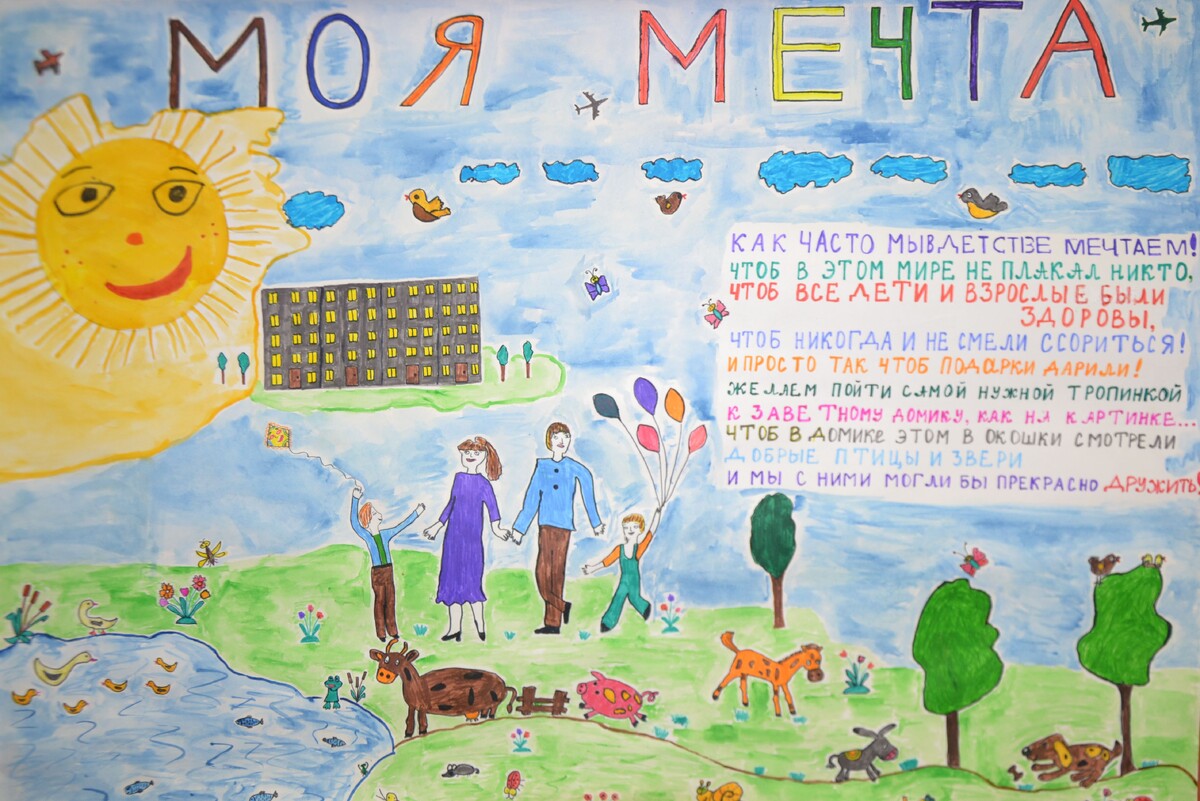 МОЯ МЕЧТА
КАК ЧАСТО МЫ В ДЕТСТВЕ МЕЧТАЕМ!
ЧТОБ В ЭТОМ МИРЕ НЕ ПЛАКАЛ НИКТО,
ЧТОБ ВСЕ ДЕТИ И ВЗРОСЛЫЕ БЫЛИ
ЗДОРОВЫ,
ЧТОБ НИКОГДА И НЕ СМЕЛИ ССОРИТЬСЯ!
И ПРОСТО ТАК ЧТОБ ПОДАРКИ ДАРИЛИ!
ЖЕЛАЕМ ПОЙТИ САМОЙ НУЖНОЙ ТРОПИНКОЙ
К ЗАВЕТНОМУ ДОМИКУ, КАК НА КАРТИНКЕ...
ЧТОБ В ДОМИКЕ ЭТОМ В ОКОШКИ СМОТРЕЛИ
ДОБРЫЕ ПТИЦЫ И ЗВЕРИ
И МЫ С НИМИ МОГЛИ БЫ ПРЕКРАСНО ДРУЖИТЬ!